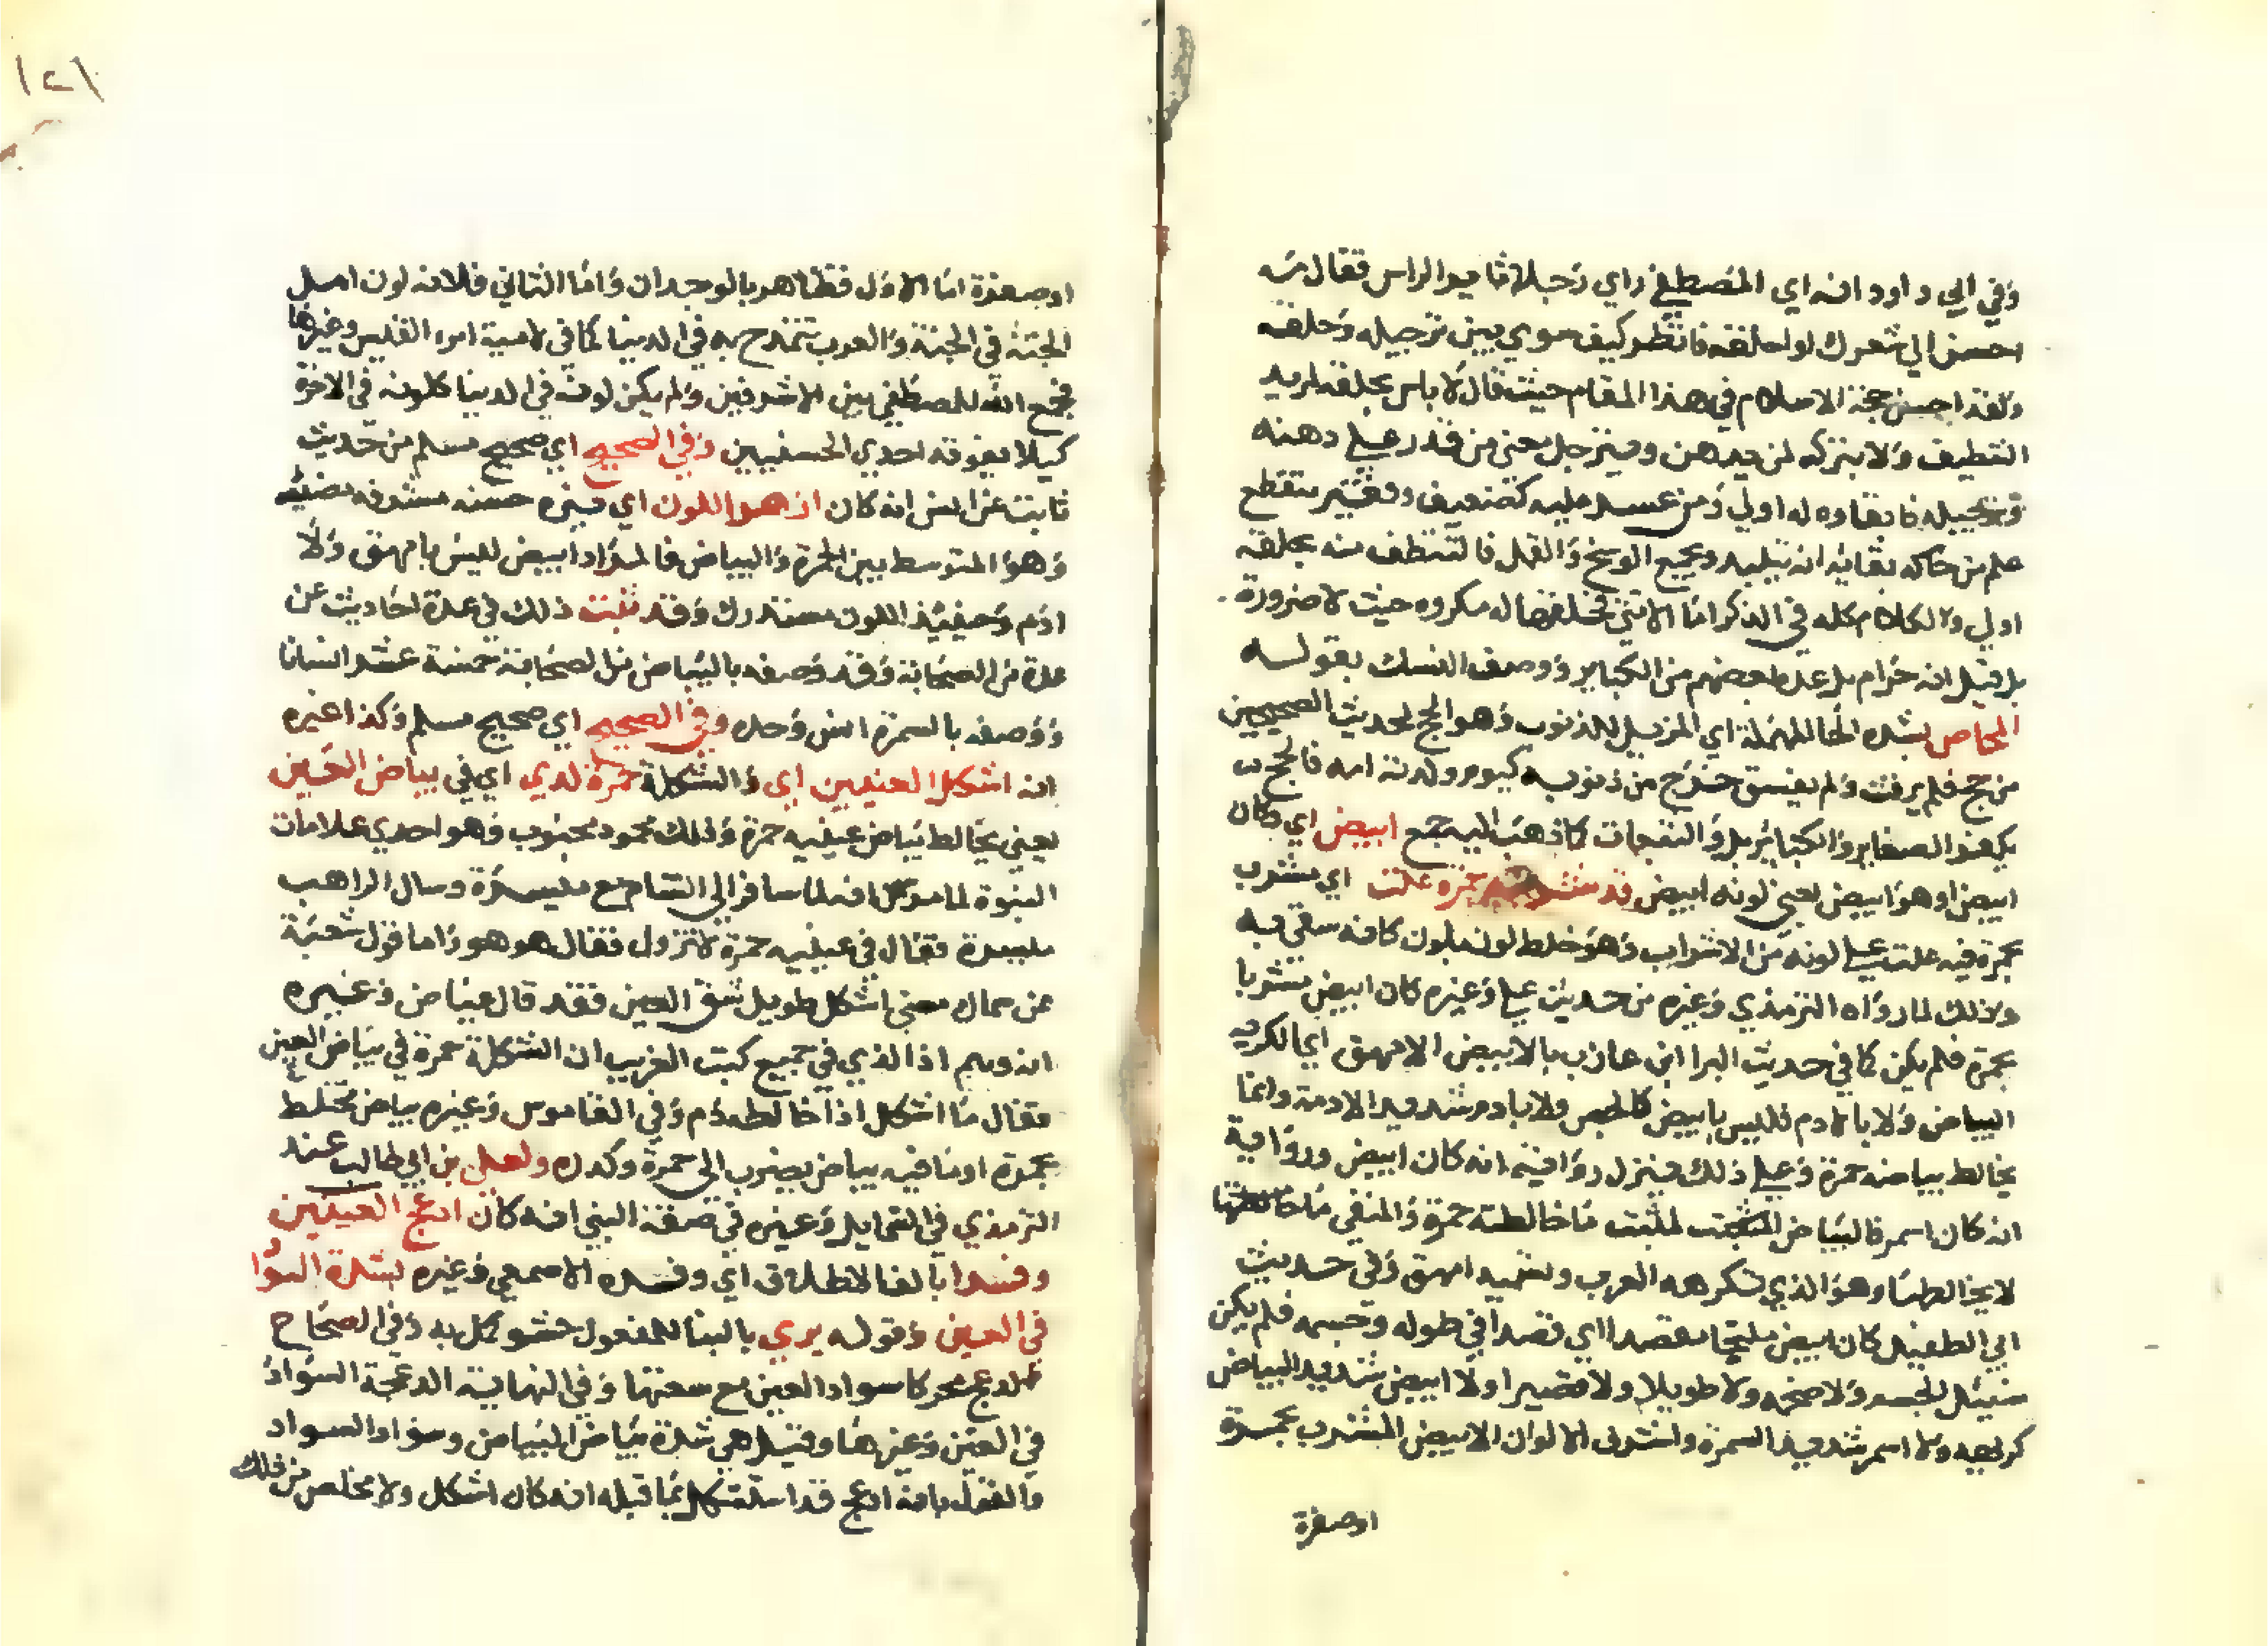 وفي ابي داود انه اي المصطفى راي رجلا ثاير الراس فقال مه
احسن الي شعرك او احلقه فانظر كيف سوي بين ترجيله وحلقه
ولقد احسن حجة الاسلام في هذا المقام حيث قال لا باس بحلقه لمريد
التنظيف ولا بتركه لمن يدهن ويترجل يعني من قدر على دهنه
وترجيله فابقاوه له اولي ومن عسر عليه كضعيف وفقير منقطع
علم من حاله بقايه انه يتلبد ويجمع الوسخ والقمل فالتنظف منه بحلقه
اولي والكلام كله في الذكر اما الانثى فحلقها له مكروه حيث لا ضرورة
بل قيل انه حرام بل عده بعضهم من الكباير ووصف النسك بقوله
الماحص بشده الحا المهملة اي المزيل للذنوب وهو الحج لحديث الصحيحين
من حج فلم يرفث ولم يفسق خرج من ذنوبه كيوم ولدته امه فالحج
يكفر الصغاير والكباير بل والتبعات كما ذهب اليه جمع ابيض اي وكان
ابيض او هو ابيض يعني لونه ابيض قد حمرة علت اي مشرب
بحمرة فيه علت على لونه من الاشراب وهو خلط لون بلون كانه سقي به
وذلك لما رواه الترمذي وغيره من حديث علي وغيره كان ابيض مشربا
بحمرة فلم يكن كما في حديث البرا ابن عازب بالابيض الامهق اي الكريه
البياض ولا بالادم فليس بابيض كالجص ولا بادم شديد الادمة وانما
يخالط بياضه حمرة وعلي ذلك ينزل رواية انه كان ابيض ورواية
انه كان اسمر فالبياض المثبت ما خالطته حمرة والمنفي ما لا يخالطها
لا يخالطها وهو الذي تكرهه العرب وتسميه امهق وفي حديث
ابي الطفيل كان ابيض مليحا مقصدا اي قصدا في طوله وجسمه فلم يكن
ضييل الجسد ولا ضخمه ولا طويلا ولا قصيرا ولا ابيض شديد البياض
كريهه ولا اسمر شديد السمرة واشرف الالوان الابيض المشرب بحمرة
او صفرة
١٢١
او صفرة اما الاول فظاهر بالوجدان واما الثاني فلانه لون اهل
الجنة في الجنة والعرب تتمدح به في الدنيا كما في لامية امرء القيس وغيرها
فجمع الله للمصطفي بين الاشرفين ولم يكن لونه في الدنيا كلونه في الاخرة
كيلا يفوته احدي الحسنيين وفي الصحيح اي صحيح مسلم من حديث
ثابت عن انس انه كان ازهر اللون اي نيره حسنه مشرقه مضيئه
وهو المتوسط بين الحمرة والبياض فالمراد ابيض ليس بامهق ولا
ادم وحينيذ اللون مستدرك وقد ثبت ذلك في عدة احاديث عن
عدة من الصحابة وقد وصفه بالبياض من الصحابة خمسة عشر انسانا
ووصفه بالسمرة انس وحده وفي الصحيح اي صحيح مسلم وكذا غيره
انه اشكل العينين اي والشكلة حمرة لدي اي في بياض العين
يعني يخالط بياض عينيه حمرة وذلك محمود محبوب وهو احدي علامات
النبوة لما مر كل انه لما سافر الي الشام مع ميسرة وسال الراهب
ميسرة فقال في عينيه حمرة لا تزول فقال هو هو واما قول شعبة
عن سماك معني اشكل طويل شق العين فقد قال عياض وغيره
انه وهم اذ الذي في جميع كتب الغريب ان الشكلة حمرة في بياض العين
فقال ما اشكل اذا خالطه دم وفي القاموس وغيره بياض مختلط
بحمرة او ما فيه بياض يضرب الي حمرة وكدره ولعلي بن ابي طالب عند
الترمذي في الشمايل وغيره في صفة النبي انه كان ادعج العينين
وفسرا بالف الاطلاق اي وفسره الاصمعي وغيره بشدة السوا
في العين وقوله يري بالبنا للمفعول حشو كمل به وفي الصحاح
الدعج محركا سواد العين مع سعتها وفي النهاية الدعجة السواد
في العين وغيرها وقيل هي شدة بياض البياض وسواد السواد
والقول بانه ادعج قد استشكل بما قبله انه كان اشكل ولا مخلص من ذلك